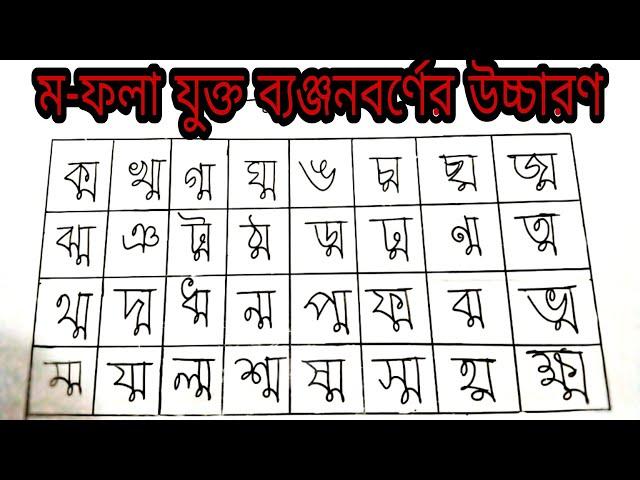 ম-ফলা যুক্ত ব্যঞ্জনবর্ণের উচ্চারণ
ক্ম খ্ম গ্ম ঘ্ম ঙ চ্ম ছ্ম জ্ম
ঝ্ম ঞ ট্ম ঠ্ম ড্ম ঢ্ম ণ্ম ত্ম
থ্ম দ্ম ধ্ম ন্ম প্ম ফ্ম ব্ম ভ্ম
ম্ম য্ম ল্ম শ্ম ষ্ম স্ম হ্ম ক্ষ্ম